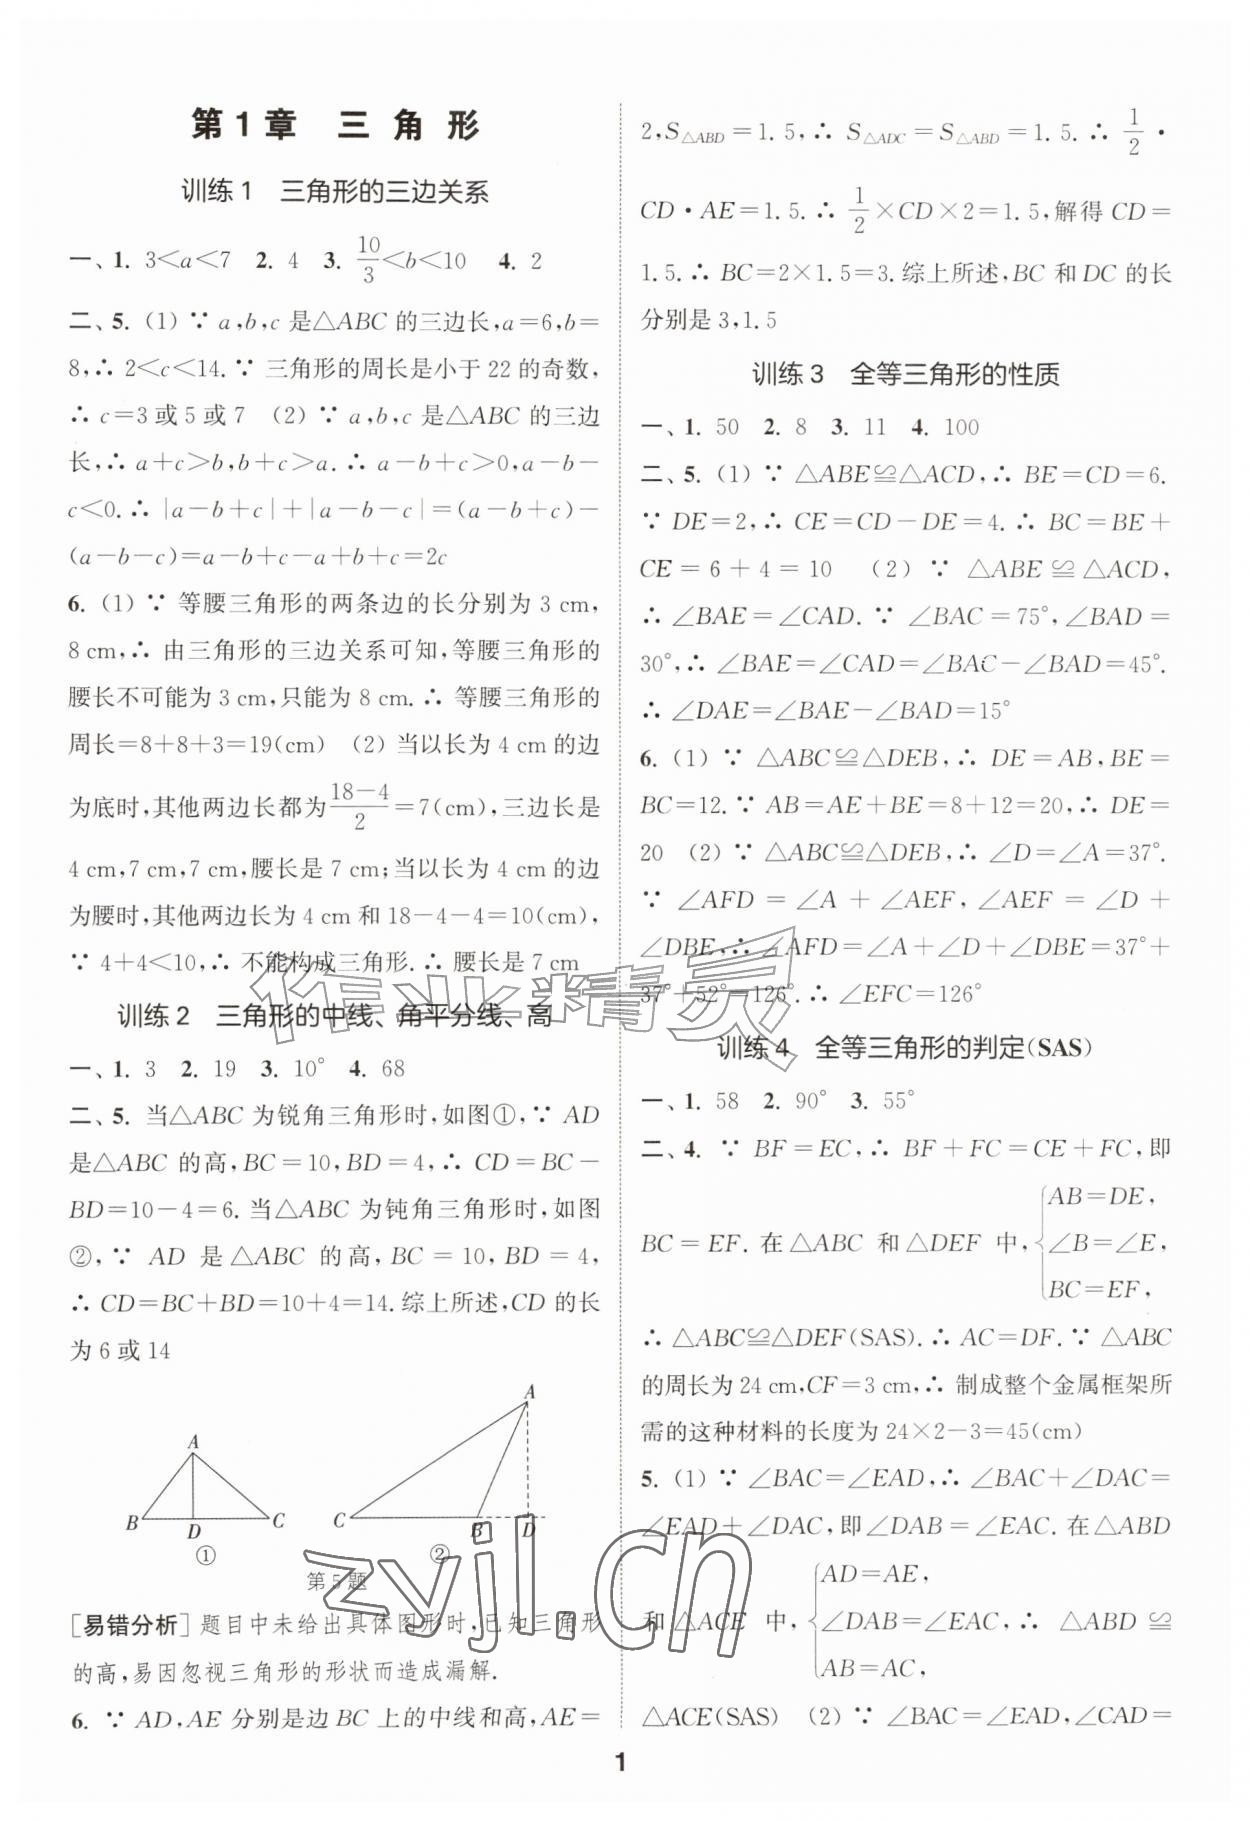 第1章 三角形
训练1 三角形的三边关系
一、1. 3<a<7 2. 4 3. 10/3<b<10 4. 2
二、5. (1) ∵ a,b,c 是△ABC 的三边长,a=6,b=
8,∴ 2<c<14. ∵ 三角形的周长是小于 22 的奇数,
∴ c=3 或 5 或 7 (2) ∵ a,b,c 是△ABC 的三边
长,∴ a+c>b,b+c>a. ∴ a-b+c>0,a-b-
c<0. ∴ |a-b+c|+|a-b-c|=(a-b+c)-
(a-b-c)=a-b+c-a+b+c=2c
6. (1) ∵ 等腰三角形的两条边的长分别为 3 cm,
8 cm,∴ 由三角形的三边关系可知,等腰三角形的
腰长不可能为 3 cm,只能为 8 cm. ∴ 等腰三角形的
周长=8+8+3=19(cm) (2) 当以长为 4 cm 的边
为底时,其他两边长都为(18-4)/2=7(cm),三边长是
4 cm,7 cm,7 cm,腰长是 7 cm;当以长为 4 cm 的边
为腰时,其他两边长为 4 cm 和 18-4-4=10(cm),
∵ 4+4<10,∴ 不能构成三角形. ∴ 腰长是 7 cm
训练2 三角形的中线、角平分线、高
一、1. 3 2. 19 3. 10° 4. 68
二、5. 当△ABC 为锐角三角形时,如图①,∵ AD
是△ABC 的高,BC=10,BD=4,∴ CD=BC-
BD=10-4=6. 当△ABC 为钝角三角形时,如图
②,∵ AD 是△ABC 的高,BC=10,BD=4,
∴ CD=BC+BD=10+4=14. 综上所述,CD 的长
为 6 或 14
A
B D C
①
A
C B D
②
第5题
[易错分析] 题目中未给出具体图形时,已知三角形
的高,易因忽视三角形的形状而造成漏解.
6. ∵ AD,AE 分别是边 BC 上的中线和高,AE=
2,S△ABD=1.5,∴ S△ADC=S△ABD=1.5. ∴ 1/2·
CD·AE=1.5. ∴ 1/2×CD×2=1.5,解得 CD=
1.5. ∴ BC=2×1.5=3. 综上所述,BC 和 DC 的长
分别是 3,1.5
训练3 全等三角形的性质
一、1. 50 2. 8 3. 11 4. 100
二、5. (1) ∵ △ABE≌△ACD,∴ BE=CD=6.
∵ DE=2,∴ CE=CD-DE=4. ∴ BC=BE+
CE=6+4=10 (2) ∵ △ABE≌△ACD,
∴ ∠BAE=∠CAD. ∵ ∠BAC=75°,∠BAD=
30°,∴ ∠BAE=∠CAD=∠BAC-∠BAD=45°.
∴ ∠DAE=∠BAE-∠BAD=15°
6. (1) ∵ △ABC≌△DEB,∴ DE=AB,BE=
BC=12. ∵ AB=AE+BE=8+12=20,∴ DE=
20 (2) ∵ △ABC≌△DEB,∴ ∠D=∠A=37°.
∵ ∠AFD=∠A+∠AEF,∠AEF=∠D+
∠DBE,∴ ∠AFD=∠A+∠D+∠DBE=37°+
37°+52°=126°. ∴ ∠EFC=126°
训练4 全等三角形的判定(SAS)
一、1. 58 2. 90° 3. 55°
二、4. ∵ BF=EC,∴ BF+FC=CE+FC,即
BC=EF. 在△ABC 和△DEF 中,{AB=DE,
∠B=∠E,
BC=EF,
∴ △ABC≌△DEF(SAS). ∴ AC=DF. ∵ △ABC
的周长为 24 cm,CF=3 cm,∴ 制成整个金属框架所
需的这种材料的长度为 24×2-3=45(cm)
5. (1) ∵ ∠BAC=∠EAD,∴ ∠BAC+∠DAC=
∠EAD+∠DAC,即∠DAB=∠EAC. 在△ABD
和△ACE 中,{AD=AE,
∠DAB=∠EAC,
AB=AC,
∴ △ABD≌
△ACE(SAS) (2) ∵ ∠BAC=∠EAD,∠CAD=
1
作业精灵
zyjl.cn